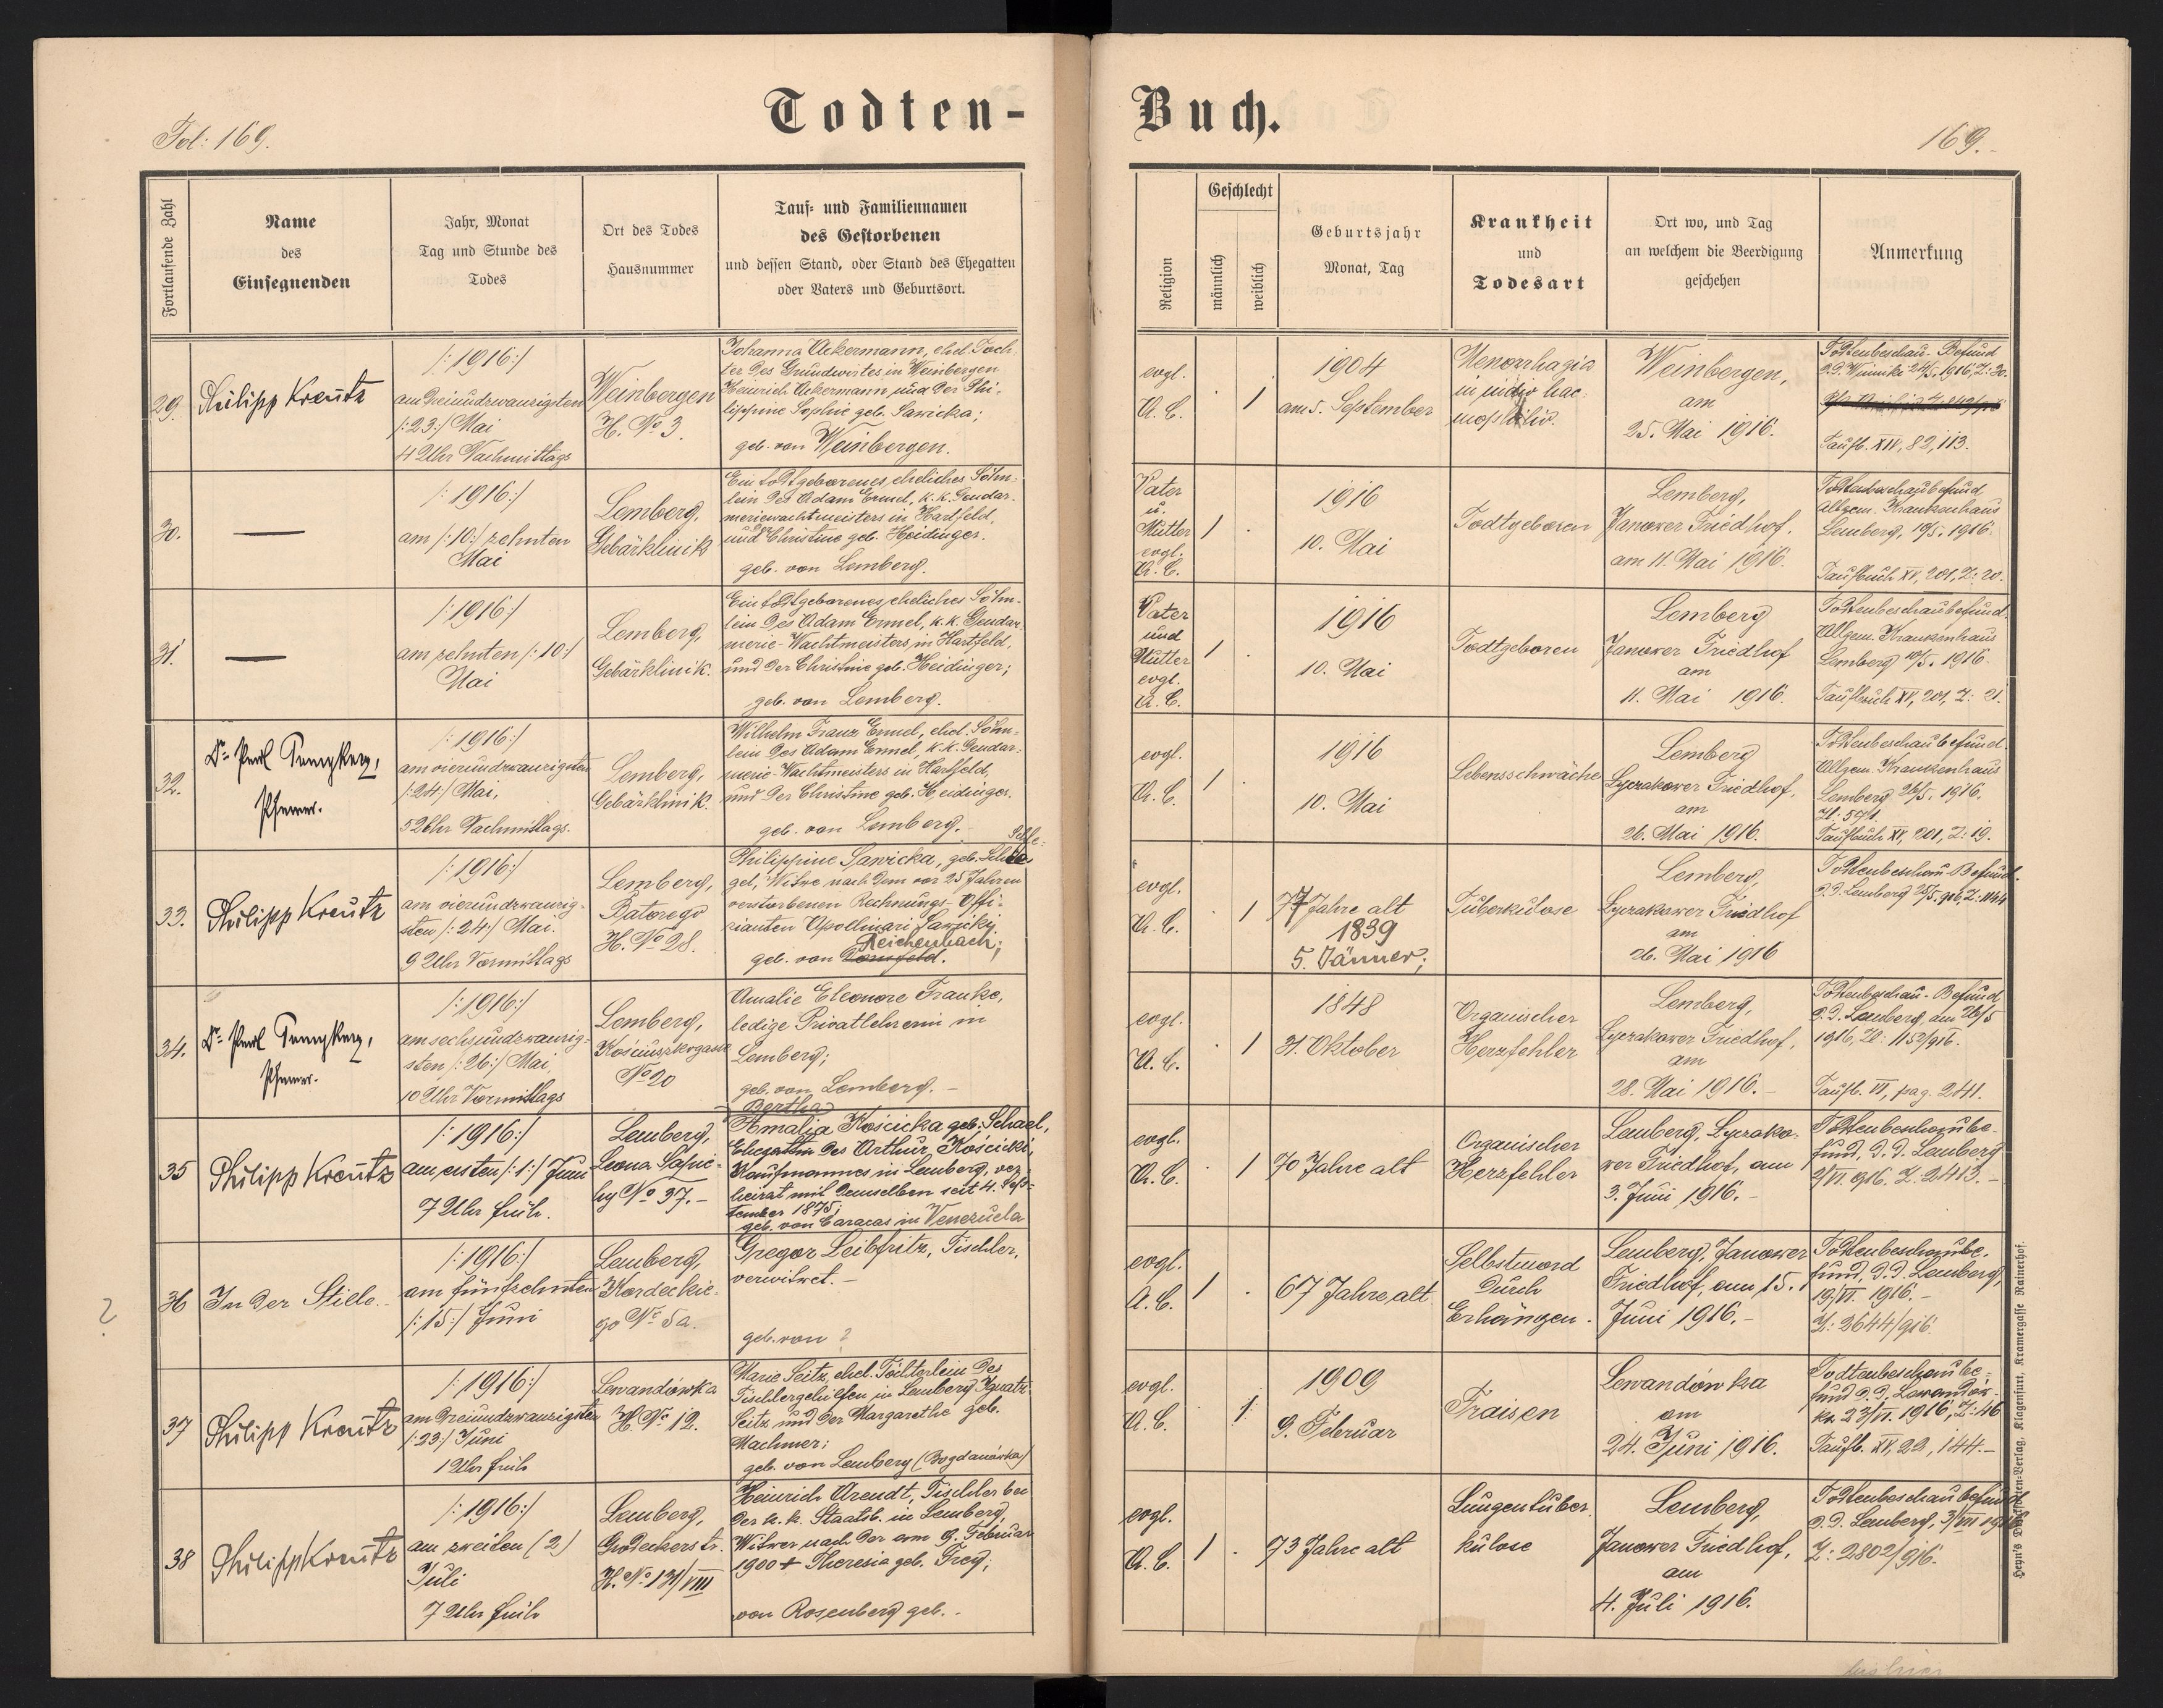 Todten-
Buch.
Fol: 169.
169.
Fortlaufende Zahl
Name
des
Einsegnenden
Jahr, Monat
Tag und Stunde des
Todes
Ort des Todes
Hausnummer
Tauf- und Familiennamen
des Gestorbenen
und dessen Stand, oder Stand des Ehegatten
oder Vaters und Geburtsort.
Religion
Geschlecht
männlich
weiblich
Geburtsjahr
Monat, Tag
Krankheit
und
Todesart
Ort wo, und Tag
an welchem die Beerdigung
geschehen
Anmerkung
29.
Philipp Kreutz
/:1916:/
am dreiundzwanzigsten
/:23:/ Mai
4 Uhr Nachmittags
Weinbergen
H. No 3.
Johanna Ackermann, ehel. Toch-
ter des Grundwirtes in Weinbergen
Heinrich Ackermann und der Phi-
lippine Sophie geb. Sawicka;
geb. von Weinbergen.
evgl.
A. C.
. 1
1904
am 5. September
Weinbergen,
am
25. Mai 1916.
Todtenbeschau-Befund
d.d. Winniki 24/5. 1916, Z: 30.
Taufb. XIV, 82, 113.
30.
—
/:1916:/
am /:10:/ zehnten
Mai
Lemberg,
Gebärklinik
Ein todtgeborenes, eheliches Söhn-
lein des Adam Ermel, k. k. Gendar-
meriewachtmeisters in Hartfeld,
und Christine geb. Heidinger.
geb. von Lemberg.
Vater
u.
Mutter
evgl.
A. C.
1 .
1916
10. Mai
Todtgeboren
Lemberg,
Janower Friedhof,
am 11. Mai 1916.
Todtenbeschaubefund
Allgem. Krankenhaus
Lemberg, 10/5. 1916.
Taufbuch XV, 201, Z: 20.
31.
—
/:1916:/
am zehnten /:10:/
Mai
Lemberg,
Gebärklinik.
Ein todtgeborenes, eheliches Söhn-
lein des Adam Ermel, k. k. Gendar-
merie-Wachtmeisters, in Hartfeld,
und der Christine geb. Heidinger;
geb. von Lemberg.
Vater
und
Mutter
evgl.
A. C.
1 .
1916
10. Mai
Todtgeboren
Lemberg
Janower Friedhof
am
11. Mai 1916.
Todtenbeschaubefund.
Allgem. Krankenhaus
Lemberg 10/5. 1916.
Taufbuch XV, 201, Z: 21.
32.
Dr. Paul
Pfarrer.
/:1916:/
am vierundzwanzigsten
/:24:/ Mai,
5 Uhr Nachmittags.
Lemberg,
Gebärklinik.
Wilhelm Franz Ermel, ehel. Söhn-
lein des Adam Ermel, k. k. Gendar-
merie-Wachtmeisters in Hartfeld,
und der Christine geb. Heidinger.
geb. von Lemberg.
evgl.
A. C.
1 .
1916
10. Mai
Lebensschwäche
Lemberg
Lyczakower Friedhof,
am
26. Mai 1916.
Todtenbeschaubefund.
Allgem. Krankenhaus
Lemberg 26/5. 1916.
Zl: 571.
Taufbuch XV, 201, Z: 19.
33.
Philipp Kreutz
/:1916:/
am vierundzwanzig-
sten /:24:/ Mai.
9 Uhr Vormittags
Lemberg,
Batorego
H. No 28.
Philippine Sawicka, geb.
gel, Witwe nach dem vor 25 Jahren
verstorbenen Rechnungs-Offi-
zianten Apollinari Sawicki,
Reichenbach;
geb. von Dornfeld.
evgl.
A. C.
. 1
77 Jahre alt
1839
5. Jänner;
Tuberkulose
Lemberg,
Lyczakower Friedhof
am
26. Mai 1916
Todtenbeschau Befund.
d.d. Lemberg 25/5. 916, Z: 1144
34.
Dr. Paul
Pfarrer.
/:1916:/
am sechsundzwanzig-
sten /:26:/ Mai,
10 Uhr Vormittags
Lemberg,
Kościuszkogasse
No 20
Amalie Eleonore Franke,
ledige Privatlehrerin in
Lemberg;
geb. von Lemberg. –
evgl.
A. C.
. 1
1848
31. Oktober
Organischer
Herzfehler
Lemberg,
Lyczakower Friedhof,
am
28. Mai 1916. –
Todtenbeschau-Befund
d.d. Lemberg, am 26/5
1916, Zl: 1152/916.
Taufb. VI, pag. 241.
35
Philipp Kreutz
/:1916:/
am ersten /:1:/ Juni
7 Uhr früh.
Lemberg,
Leona Sapie-
hy No 37. –
Bertha
Amalia Kościcka geb. Schaal,
Ehegattin des Arthur Kościcki,
Kaufmannes in Lemberg, ver-
heirat mit demselben seit 4. Sep-
tember 1875;
geb. von Caracas in Venezuela
evgl.
A. C.
. 1
70 Jahre alt
Organischer
Herzfehler
Lemberg, Lyczako-
wer Friedhof, am
3. Juni 1916. –
Todtenbeschaube-
fund, d.d. Lemberg
2/VI. 916. Z. 2413. –
?
36
In der Stille. –
/:1916:/
am fünfzehnten
/:15:/ Juni
Lemberg,
Kordeckie-
go No 5a.
Gregor Leibfritz, Tischler,
verwitwet. –
geb. von ?
evgl.
A. C.
1 .
67 Jahre alt
Selbstmord
durch
Erhängen.
Lemberg, Janower
Friedhof, am 15.
Juni 1916. –
Todtenbeschaube-
fund, d.d. Lemberg,
19/VI. 1916. –
Z: 2644/916.
37
Philipp Kreutz
/:1916:/
am dreiundzwanzigsten
/:23:/ Juni
1 Uhr früh
Lewandówka
H. No 12.
Marie Seitz, ehel. Töchterlein des
Tischlergehilfen in Lemberg Ignatz
Seitz und der Margarethe geb.
Machmer;
geb. von Lemberg (Bogdanówka)
evgl.
A. C.
. 1
1909
9. Februar
Fraisen
Lewandówka
am
24. Juni 1916.
Todtenbeschaube-
fund d.d. Lewandów-
ka 23/VI. 1916, Z: 46
Taufb. XV, 22, 144. –
38
Philipp Kreutz
/:1916:/
am zweiten (2)
Juli
7 Uhr früh
Lemberg,
Grodeckerstr.
H. No 131/VIII
Heinrich Arendt, Tischler bei
der k. k. Staatsb. in Lemberg,
Witwer nach der am 9. Februar
1900 + Theresia geb. Frey;
von Rosenberg geb. –
evgl.
A. C.
1 .
73 Jahre alt
Lungentuber-
kulose
Lemberg,
Janower Friedhof,
am
4. Juli 1916.
Todtenbeschaubefund
d.d. Lemberg, 3/VII 1916
Z: 2802/916.
Heyn's Drucksorten-Verlag, Klagenfurt, Kramergasse Rainerhof.